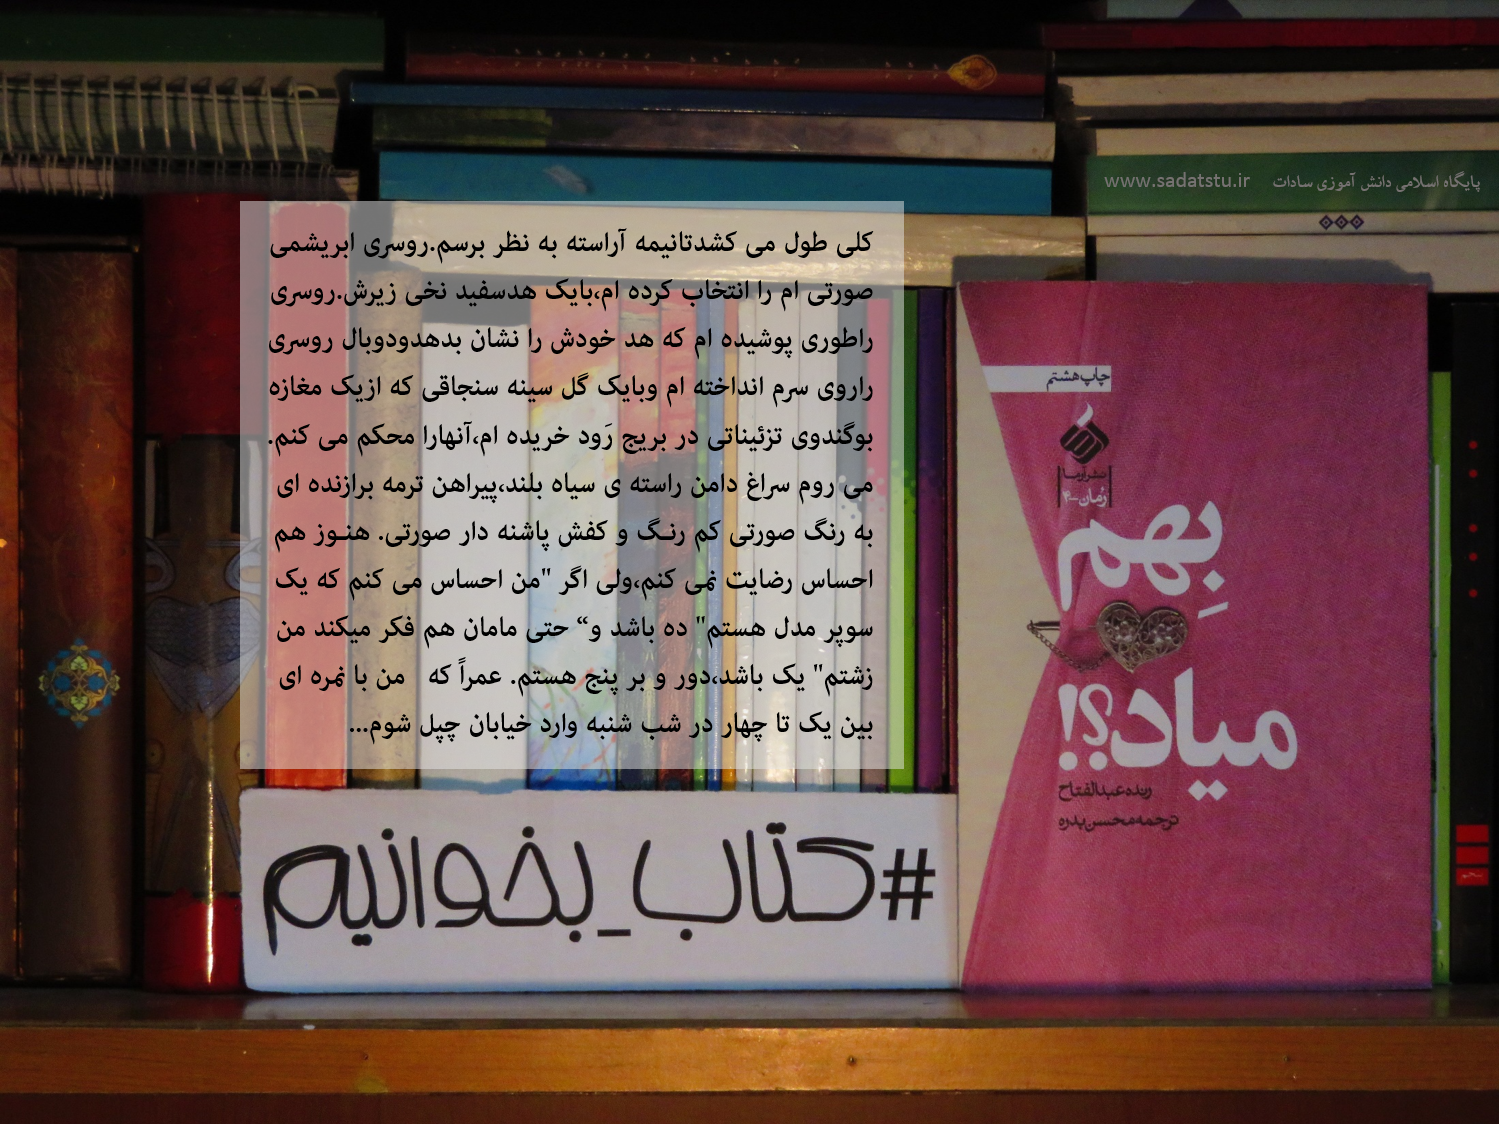 پایگاه اسلامی دانش آموزی سادات www.sadatstu.ir
کلی طول می کشدتانیمه آراسته به نظر برسم.روسری ابریشمی
صورتی ام را انتخاب کرده ام،بایک هدسفید نخی زیرش.روسری
راطوری پوشیده ام که هد خودش را نشان بدهدودوبال روسری
راروی سرم انداخته ام وبایک گل سینه سنجاقی که ازیک مغازه
بوگندوی تزئیناتی در بریج رَود خریده ام،آنهارا محکم می کنم.
می روم سراغ دامن راسته ی سیاه بلند،پیراهن ترمه برازنده ای
به رنگ صورتی کم رنگ و کفش پاشنه دار صورتی. هنوز هم
احساس رضایت نمی کنم،ولی اگر "من احساس می کنم که یک
سوپر مدل هستم" ده باشد و“ حتی مامان هم فکر میکند من
زشتم" یک باشد،دور و بر پنج هستم. عمراً که من با نمره ای
بین یک تا چهار در شب شنبه وارد خیابان چپل شوم...
چاپ هشتم
نشر آرما
رمان-۴
بِهم
میاد؟!
رنده عبدالفتاح
ترجمه محسن بدره
#کتاب_بخوانیم